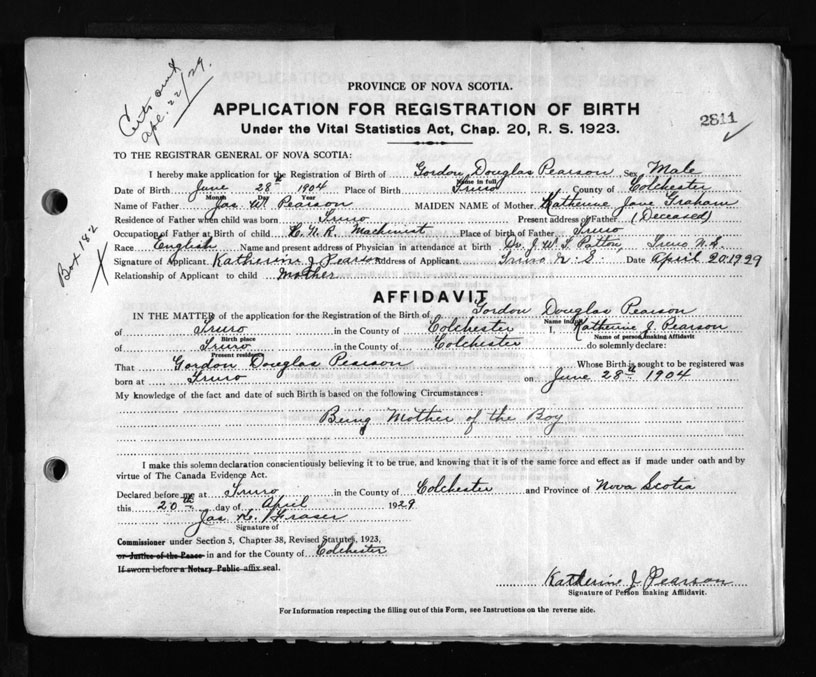 Certs out
Apl. 22/29.
PROVINCE OF NOVA SCOTIA.
APPLICATION FOR REGISTRATION OF BIRTH
2811
Under the Vital Statistics Act, Chap. 20, R. S. 1923.
TO THE REGISTRAR GENERAL OF NOVA SCOTIA:
I hereby make application for the Registration of Birth of Gordon Douglas Pearson Sex Male
Name in full
Date of Birth June 28th 1904 Place of Birth Truro County of Colchester
Month Day Year
Name of Father Jas W. Pearson MAIDEN NAME of Mother Katherine Jane Graham
Residence of Father when child was born Truro Present address of Father (Deceased)
Occupation of Father at Birth of child Machinist Place of birth of Father Truro
Box 182
Race English Name and present address of Physician in attendance at birth Dr. J. W. T. Patton, Truro N.S.
Signature of Applicant Katherine J Pearson Address of Applicant Truro N. S. Date April 20 1929
Relationship of Applicant to child Mother
AFFIDAVIT
IN THE MATTER of the application for the Registration of the Birth of Gordon Douglas Pearson
Name in full
of Truro in the County of Colchester I, Katherine J. Pearson
Birth place Name of person making Affidavit
of Truro in the County of Colchester do solemnly declare:
Present residence
That Gordon Douglas Pearson Whose Birth is sought to be registered was
born at Truro on June 28th 1904
My knowledge of the fact and date of such Birth is based on the following Circumstances:
Being Mother of the Boy
I make this solemn declaration conscientiously believing it to be true, and knowing that it is of the same force and effect as if made under oath and by
virtue of The Canada Evidence Act.
Declared before me at Truro in the County of Colchester and Province of Nova Scotia
this 20th day of April 1929
Jas Fraser
Signature of
Commissioner under Section 5, Chapter 38, Revised Statutes, 1923,
or Justice of the Peace in and for the County of Colchester
If sworn before a Notary Public affix seal.
Katherine J Pearson
Signature of Person making Affidavit.
For Information respecting the filling out of this Form, see Instructions on the reverse side.